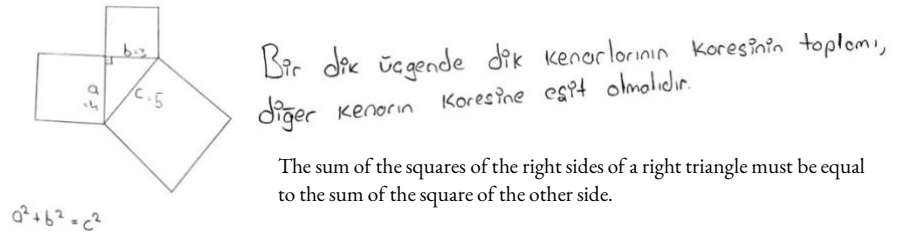 b=3
Bir dik üçgende dik kenarlarının karesinin toplamı,
a
=4
c=5
diğer kenarın karesine eşit olmalıdır.
The sum of the squares of the right sides of a right triangle must be equal
to the sum of the square of the other side.
a²+b²=c²